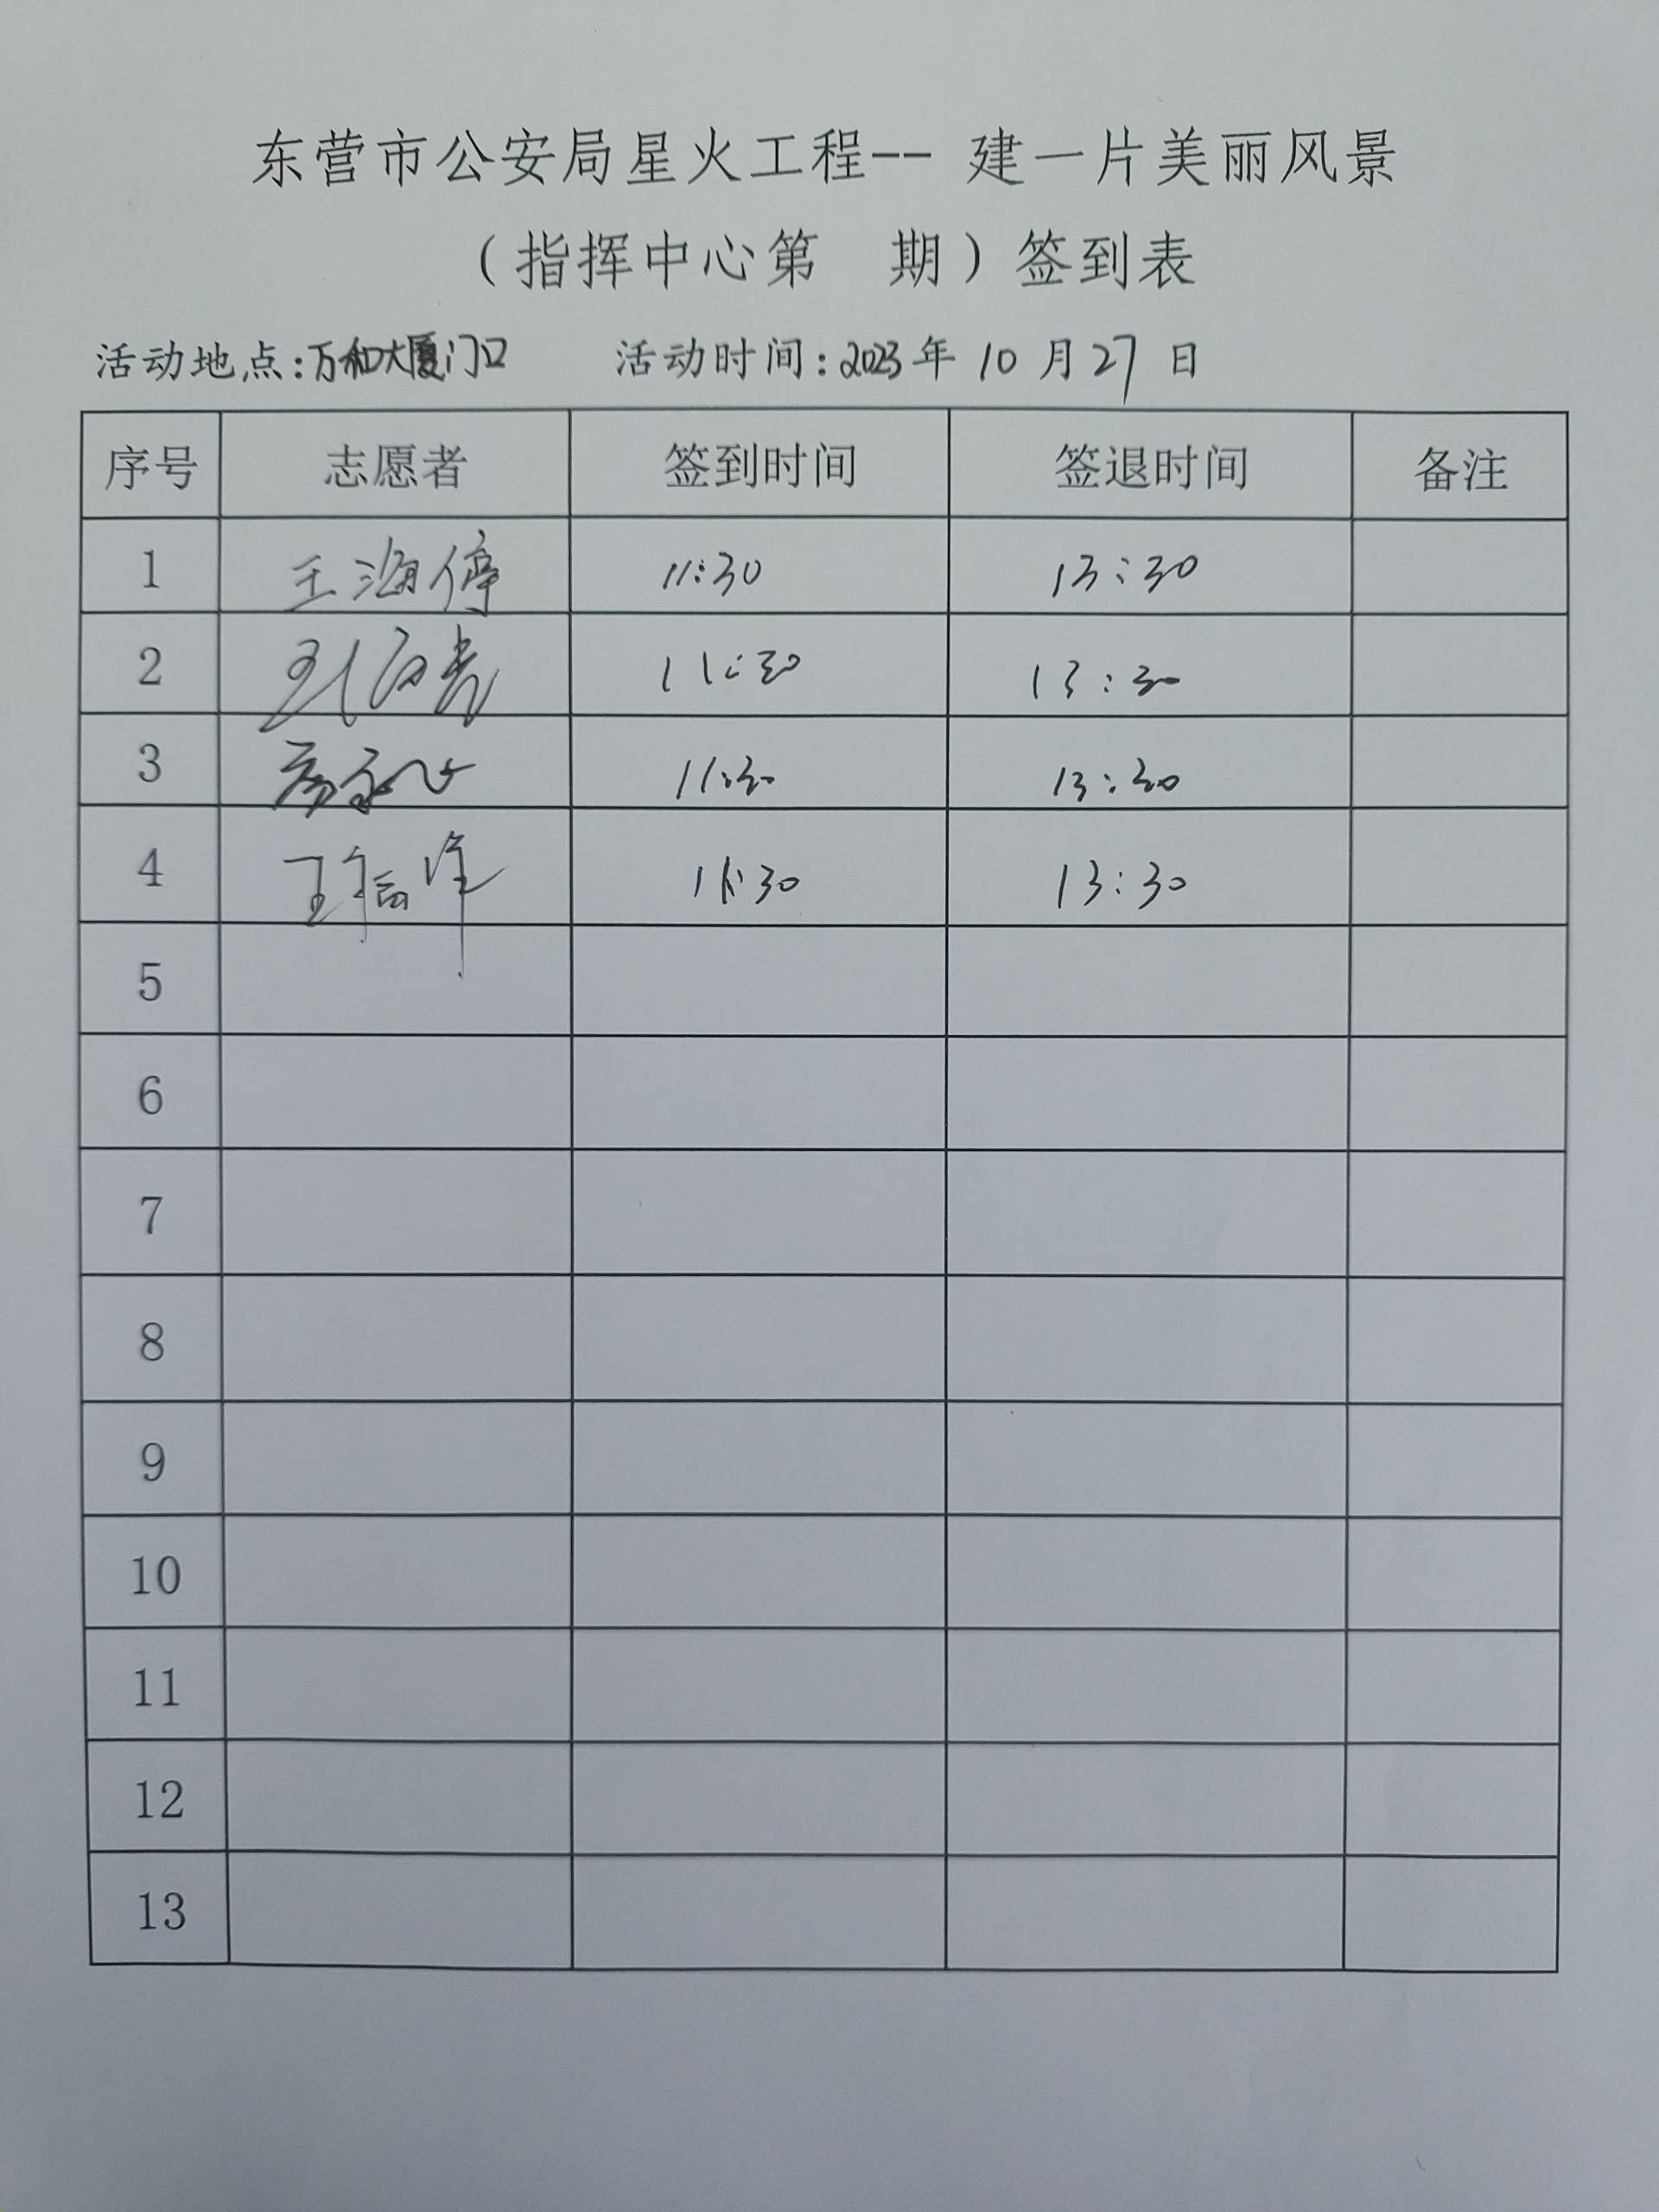 东营市公安局星火工程-- 建一片美丽风景
（指挥中心第 期）签到表
活动地点：万和大厦门口 活动时间：2023年 10 月 27 日
序号 志愿者 签到时间 签退时间 备注
1 王海停 11:30 13:30
2 11:30 13:30
3 11:30 13:30
4 11:30 13:30
5
6
7
8
9
10
11
12
13